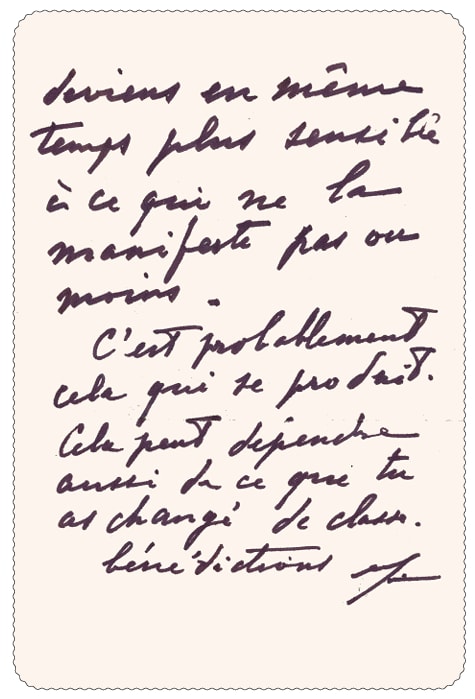 deviens en même
temps plus sensible
à ce qui ne la
manifeste pas ou
moins.
C'est probablement
cela qui se produit.
Cela peut dépendre
aussi de ce que tu
as changé de classe.
bénédictions